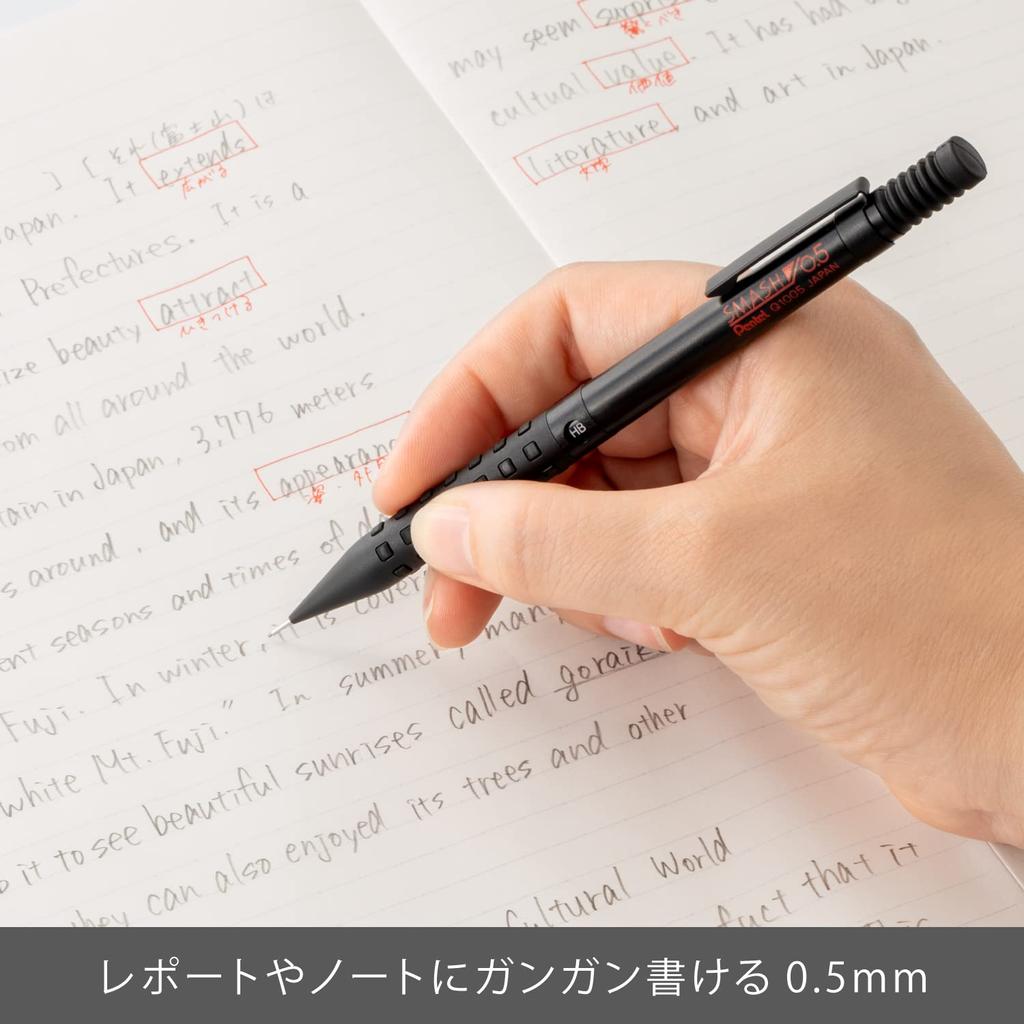 ] [ とん(富士山)は
Japan. It extends
広がる
Prefectures. It is a
ize beauty attract
ひきつける
om all around the world.
ain in Japan, 3,776 meters
s around, and its appearan
姿・外見
ent seasons and times of
Fuji. In winter, it is cover
white Mt. Fuji." In summer, man
o it to see beautiful sunrises called goraik
hey can also enjoyed its trees and other
Cultural World
fact that it
may seem surpris
cultual value. It has had
価値
literature, and art in Japan.
文学
SMASH 0.5
Pentel Q1005 JAPAN
HB
レポートやノートにガンガン書ける 0.5mm